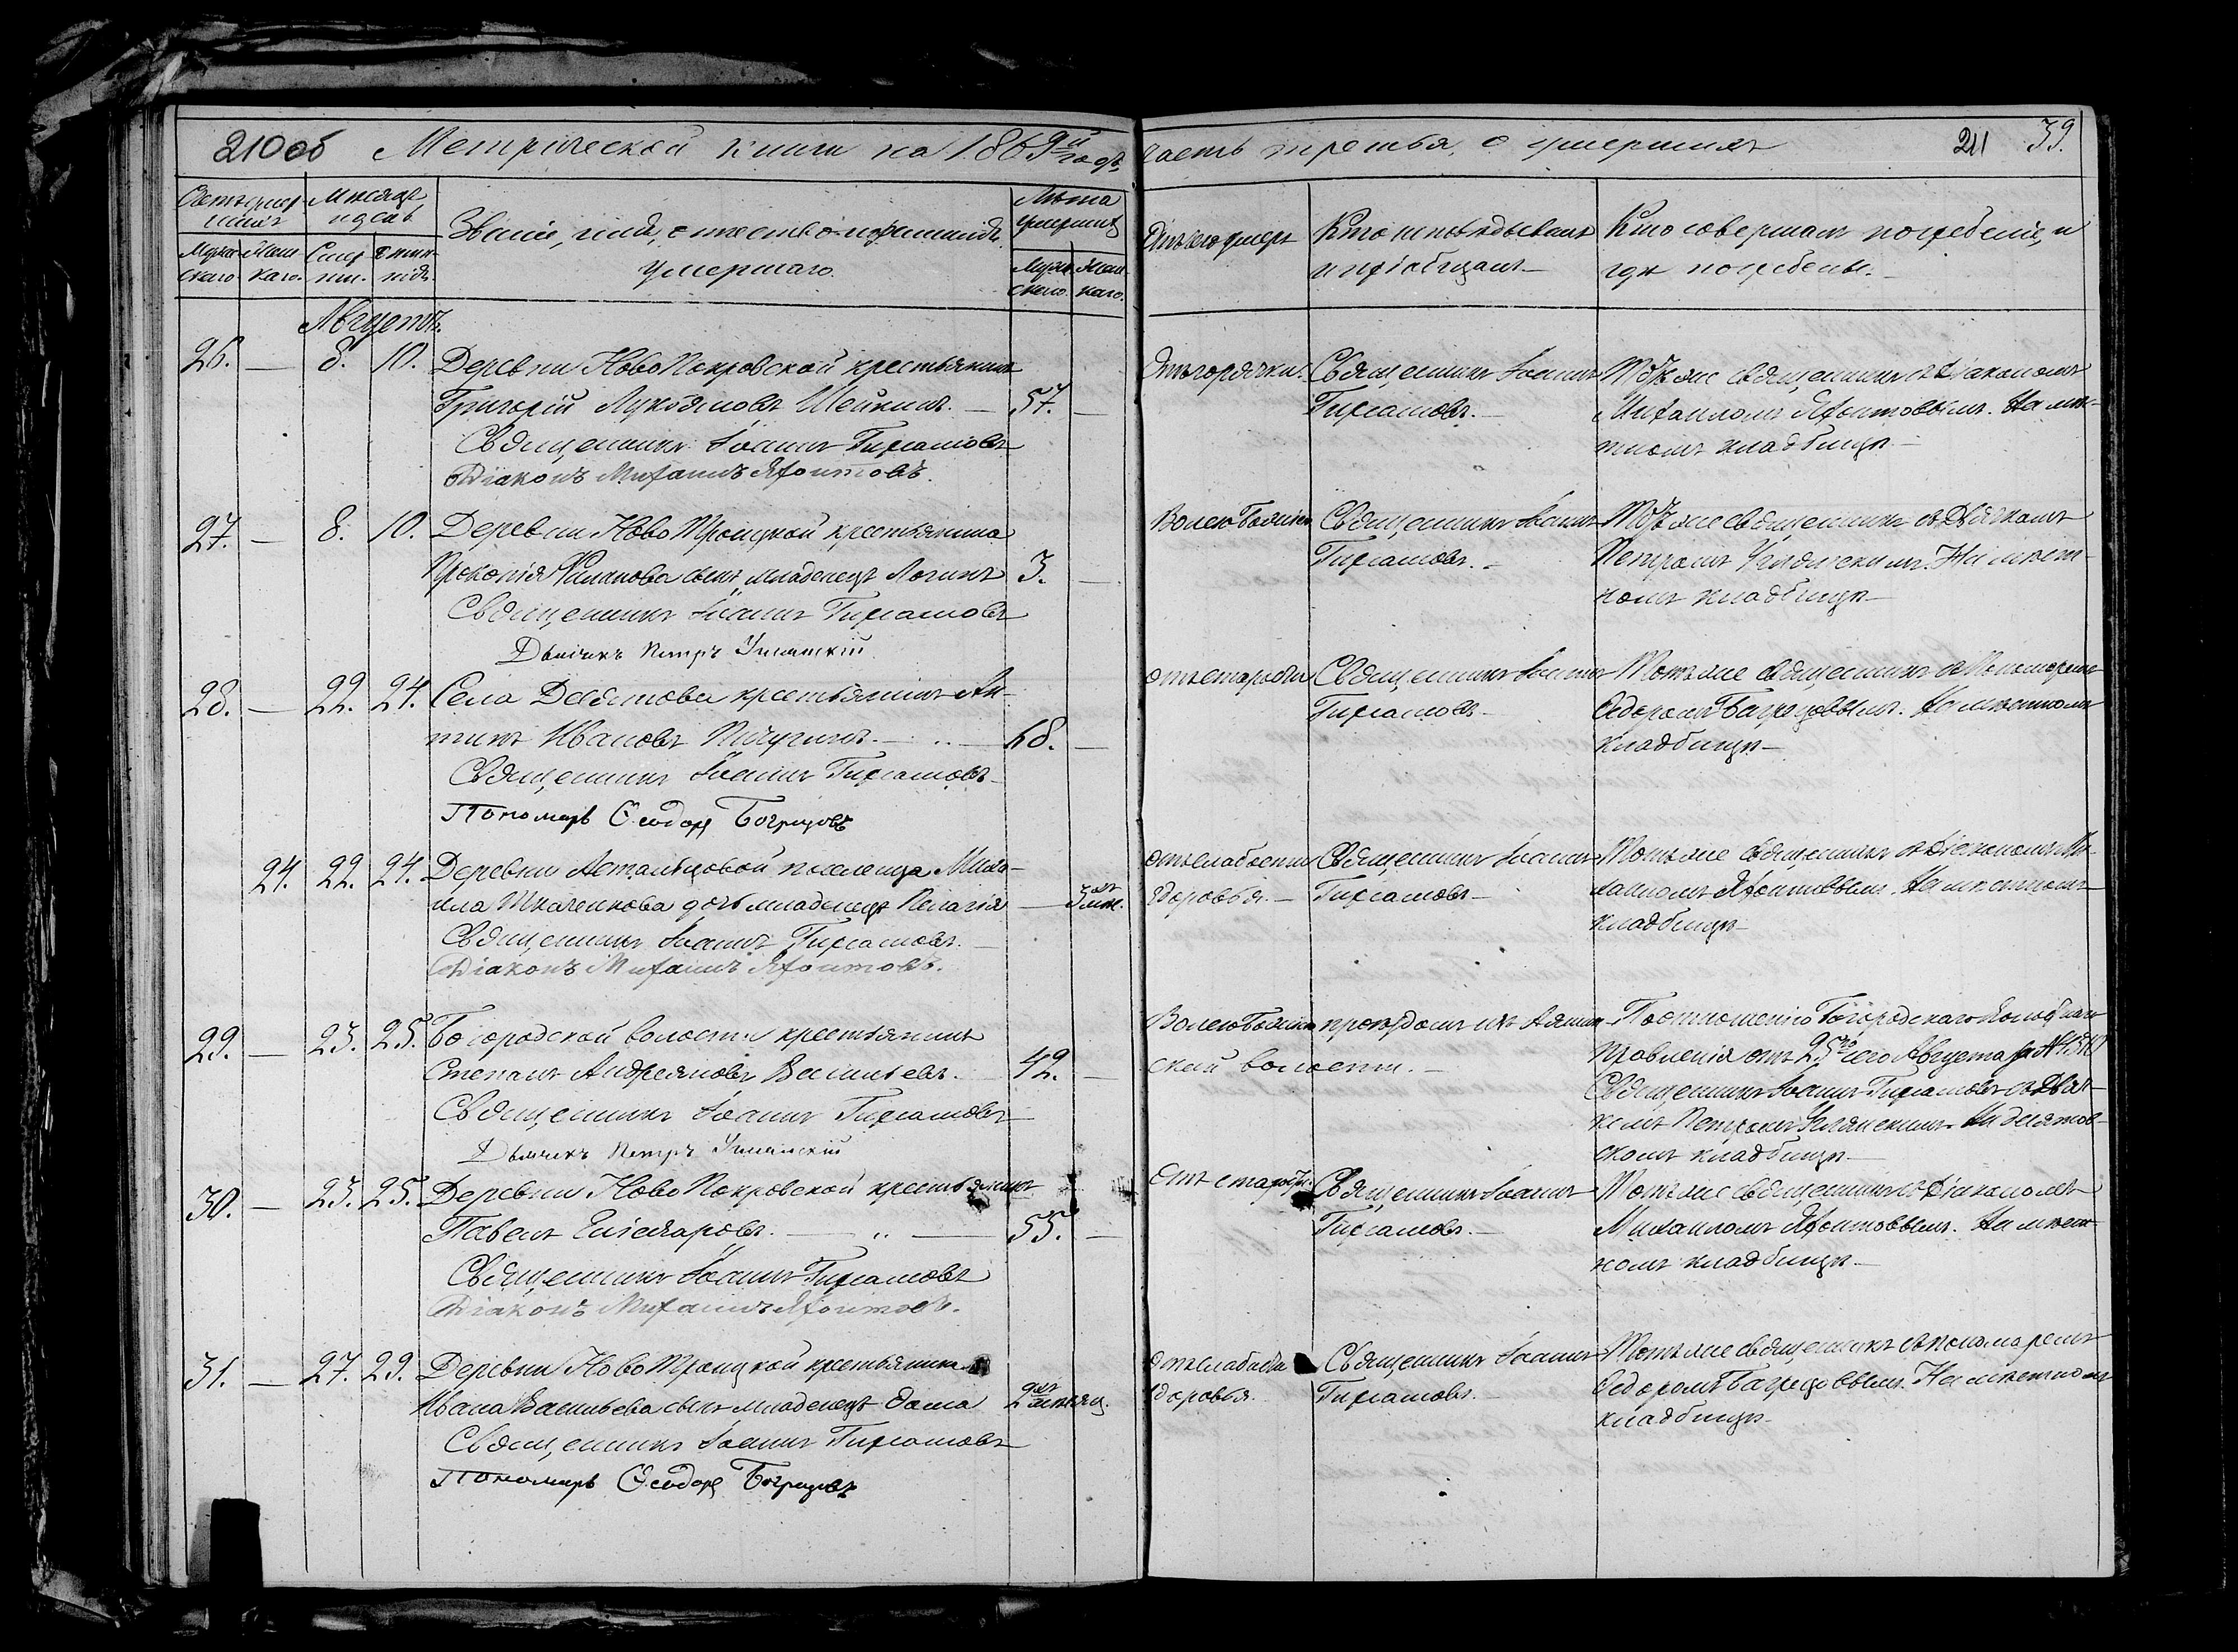 210 об Метрической книги на 1869й годъ,
часть третья, о умершихъ 211 39.
Счетъ умер-
шихъ
Мѣсяцъ
и день
Званіе, имя, отчество и фамилія
умершаго.
Лѣта
умершаго
Муже-
скаго
Жен-
скаго.
Смер-
ти.
Муже-
скаго.
Жен-
скаго.
Отъ чего умеръ
Кто исповѣдывалъ
и пріобщалъ
Кто совершалъ погребеніе, и
гдѣ погребены.
Августъ.
26. — 8. 10. Деревни Ново Покровской крестьянинъ
Григорій Лукояновъ Шейкинъ. — 57. —
Священникъ Іоаннъ Гирсамовъ
Діаконъ Михаилъ Яхонтовъ.
Отъ горячки.
Священникъ Іоаннъ
Гирсамовъ.
Тотъ же священникъ съ Діакономъ
Михаиломъ Яхонтовымъ. На мѣс-
тномъ кладбищѣ.
27. — 8. 10. Деревни Ново Троицкой крестьянина
Прокопія сынъ младенецъ Логинъ 3. —
Священникъ Іоаннъ Гирсамовъ
Дьячекъ Петръ
Волею Божіею
Священникъ Іоаннъ
Гирсамовъ.
Тотъ же священникъ съ Дьячкомъ
Петромъ На мѣст-
номъ кладбищѣ
28. — 22. 24. Села Девятова крестьянинъ Ан-
типъ Ивановъ Пичугинъ. — 68. —
Священникъ Іоаннъ Гирсамовъ
Пономарь Ѳеодоръ Багрецовъ
отъ старости
Священникъ Іоаннъ
Гирсамовъ
Тотъ же священникъ съ Пономаремъ
Ѳедоромъ Багрецовымъ. На мѣстномъ
кладбищѣ
24. 22. 24. Деревни поселенца Миха-
ила Ткаченкова дочь младенецъ Пелагія — 3 мѣс.
Священникъ Іоаннъ Гирсамовъ.
Діаконъ Михаилъ Яхонтовъ.
отъ слабости
здоровья.
Священникъ Іоаннъ
Гирсамовъ
Тотъ же священникъ съ Діакономъ Ми-
хаиломъ Яхонтовымъ. На мѣстномъ
кладбищѣ
29. — 23. 25. Богородской волости крестьянинъ
Степанъ Андреяновъ Васильевъ. 42. —
Священникъ Іоаннъ Гирсамовъ
Дьячекъ Петръ
Волею Божіею проѣздомъ изъ
ской волости.
По отношенію Богородскаго Волостнаго
Правленія отъ 25го сего Августа за №
Священникъ Іоаннъ Гирсамовъ съ Дьяч-
комъ Петромъ На Девятов-
скомъ кладбищѣ.
30. — 23. 25. Деревни Ново Покровской крестьянинъ
Павелъ Елизаровъ. — „ — 55. —
Священникъ Іоаннъ Гирсамовъ
Діаконъ Михаилъ Яхонтовъ.
Отъ старости.
Священникъ Іоаннъ
Гирсамовъ.
Тотъ же священникъ съ Діакономъ
Михаиломъ Яхонтовымъ. На мѣст-
номъ кладбищѣ.
31. — 27. 29. Деревни Ново Троицкой крестьянина
Ивана Васильева сынъ младенецъ Ѳома 2хъ мѣсяц.
Священникъ Іоаннъ Гирсамовъ
Пономарь Ѳеодоръ Багрецовъ
отъ слабости
здоровья.
Священникъ Іоаннъ
Гирсамовъ.
Тотъ же священникъ съ пономаремъ
Ѳедоромъ Багрецовымъ. На мѣстномъ
кладбищѣ